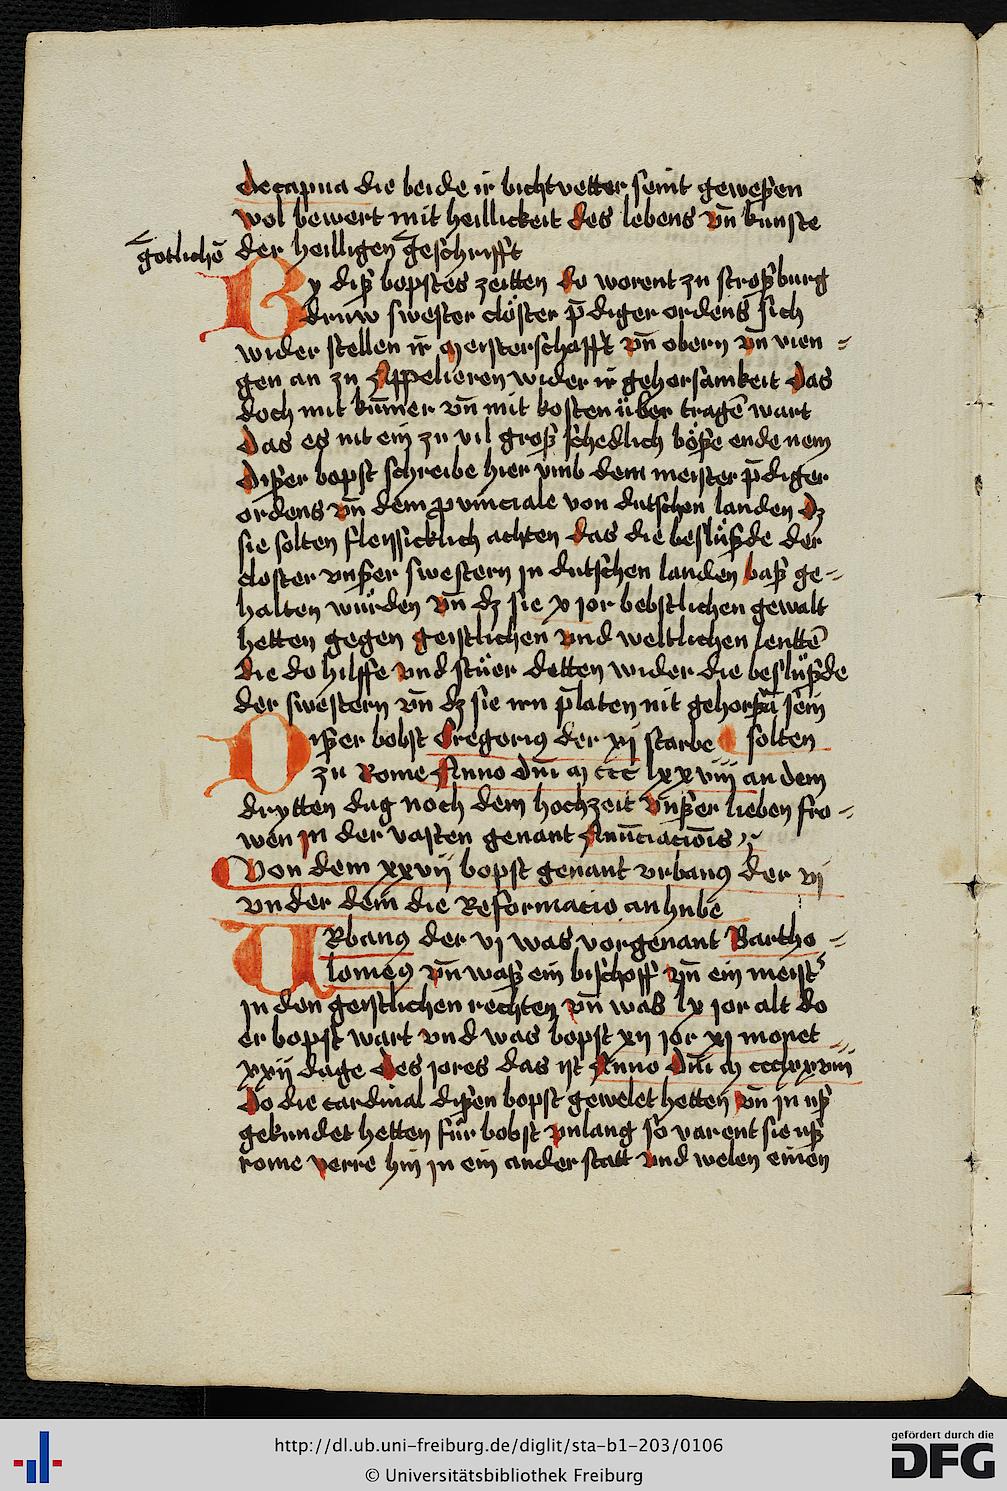 decapua die beide ir bichtvetter seint geweßen
wol bewert mit heillickeit des lebens vn̄ kunste
götlichē der heilligen geschrifft
By diß bopstes zeitten do worent zu stroßburg
druw swester clöster p̄diger ordens sich
wider stellen ir meisterschafft vn̄ obern vn̄ vien=
gen an zu Appelieren wider ir gehorsamkeit das
doch mit kum̄er vn̄ mit kosten über tragē wart
das es nit ein zu vil groß schedlich böße ende nem
dißer bopst schreibe hier vmb dem meister p̄diger
ordens vn̄ dem pvinciale von dutschen landen dz
sie solten fleissicklich achten das die beslüßde der
closter vnßer swestern in dutschen landen baß ge=
halten würden vn̄ dz sie x jor bebstlichen gewalt
hetten gegen geistlichen vnd weltlichen leuttē
die do hilffe vnd stüer detten wider die beslüßde
der swestern vn̄ dz sie irn p̄laten nit gehorsā sein
Dißer bobst Gregorius der xj starbe solten
zu Rome Anno dn̄i m ccc lxxviij an dem
drytten dag noch dem hochzeit vnßer lieben fro=
wen in der vasten genant Anūciatiōis
Von dem xxvij bopst genant vrbanus der vj
vnder dem die Reformacio anhube
URbanus der vj was vorgenant Bartho=
lomeus vn̄ waß ein bischoff vn̄ ein meistʼ
in den geistlichen rechten vn̄ was lx jor alt do
er bopst wart vnd was bopst xij jor xj monet
xxij dage des jores das ist Anno dn̄i m ccclxxviij
Do die cardinal dißen bopst gewelet hetten vn̄ in uß
gekundet hetten für bobst vnlang so varent sie uß
rome verre hin in ein ander statt vnd welen einen
http://dl.ub.uni-freiburg.de/diglit/sta-b1-203/0106
© Universitätsbibliothek Freiburg
gefördert durch die
DFG